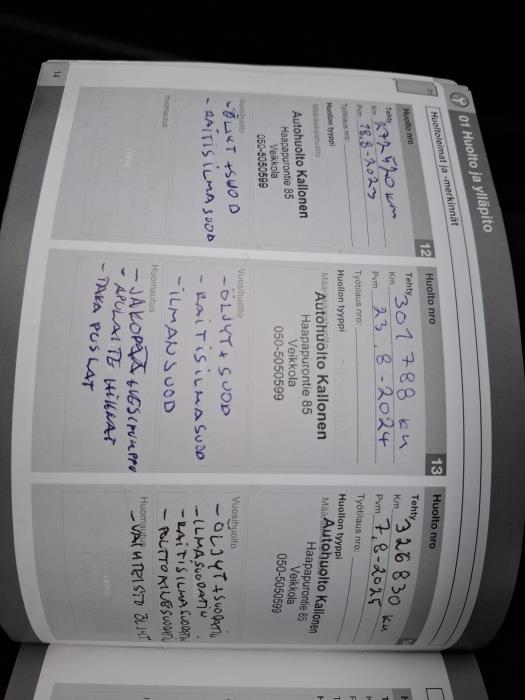 01 Huolto ja ylläpito
Huoltoleimat ja -merkinnät
Huolto nro 12
Tehty 272 520 km
Km
Pvm 18.8-2023
Työtilaus nro:
Huollon tyyppi
Määräaikaishuolto
Autohuolto Kallonen
Haapapurontie 85
Veikkola
050-5050599
Vuosihuolto
- ÖLJYT + SUOD
- RAITISILMASUOD
Huomautus
Huolto nro 13
Tehty 301 788 km
Km
Pvm 23.8-2024
Työtilaus nro:
Huollon tyyppi
Autohuolto Kallonen
Haapapurontie 85
Veikkola
050-5050599
Vuosihuolto
- ÖLJYT + SUOD
- RAITISILMASUOD
- ILMANSUOD
Huomautus
- JAKOPÄÄ + VESIPUMPPU
- APULAITE HIHNAT
- TAKA PUSLAT
Huolto nro
Tehty 326 830 km
Km
Pvm 7.8-2025
Työtilaus nro:
Huollon tyyppi
Autohuolto Kallonen
Haapapurontie 85
Veikkola
050-5050599
Vuosihuolto
- ÖLJYT + SUODATIN
- ILMASUODATIN
- RAITISILMASUODATIN
- POLTTOAINESUODATIN
Huomautus
- VAIHTEISTO ÖLJYT
14